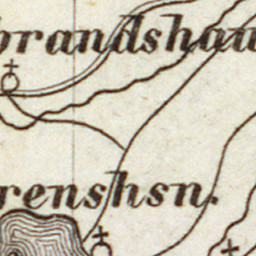 brandshau
renshsn.